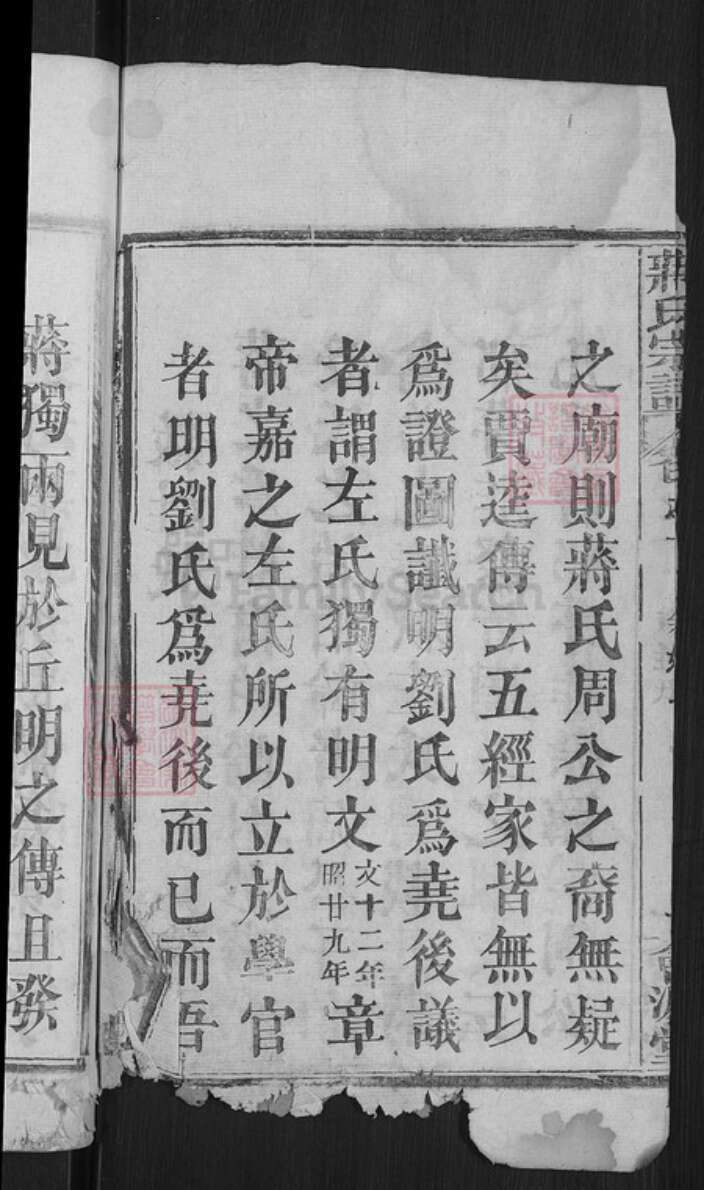 蔣氏宗譜
之廟則蔣氏周公之裔無疑
矣賈逵傳云五經家皆無以
爲證圖讖明劉氏爲堯後議
者謂左氏獨有明文文十二年昭廿九年章
帝嘉之左氏所以立於學官
者明劉氏爲堯後而已而吾
蔣獨兩見於丘明之傳且發